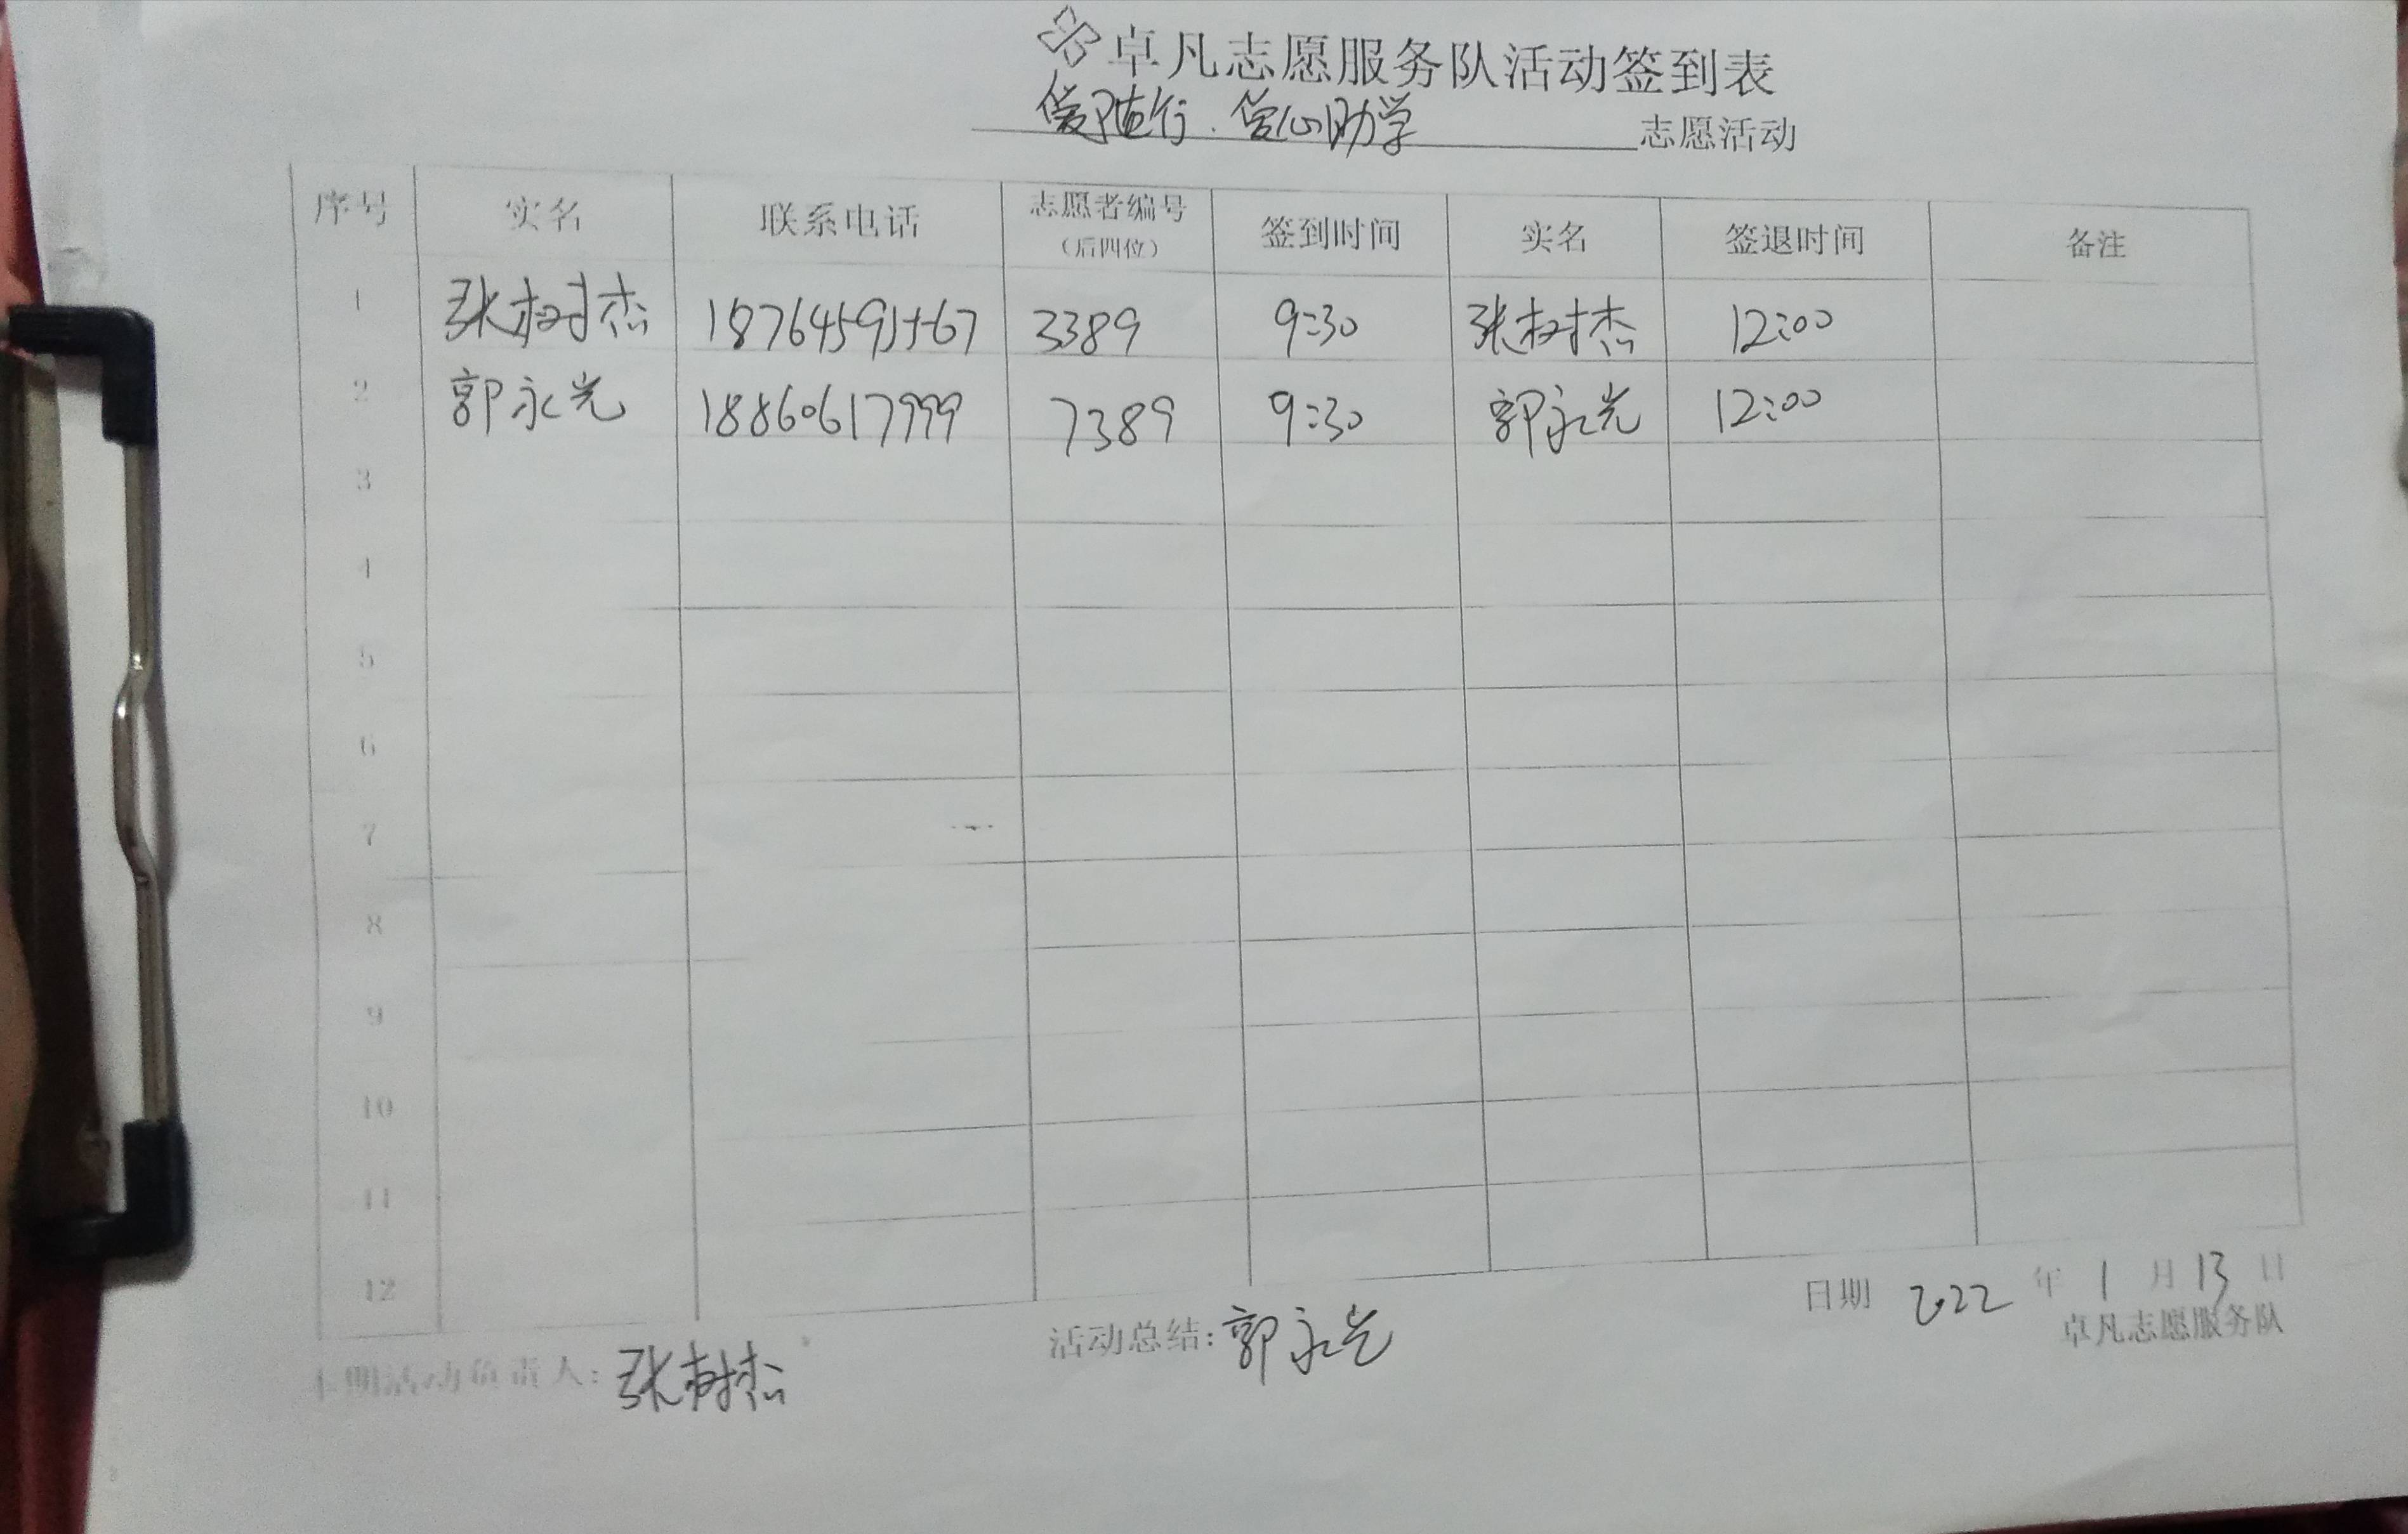 卓凡志愿服务队活动签到表
爱随行.爱心助学 志愿活动
序号 实名 联系电话 志愿者编号（后四位） 签到时间 实名 签退时间 备注
1 张树杰 18764591567 3389 9:30 张树杰 12:00
2 郭永光 18860617999 7389 9:30 郭永光 12:00
3
4
5
6
7
8
9
10
11
12
日期 2022 年 1 月 13 日
本期活动负责人: 张树杰 活动总结: 郭永光 卓凡志愿服务队